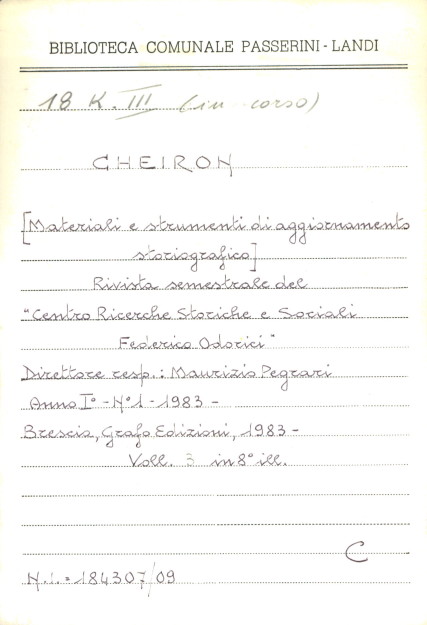 BIBLIOTECA COMUNALE PASSERINI - LANDI
18 K. III (in corso)
CHEIRON
[Materiali e strumenti di aggiornamento
storiografico]
Rivista semestrale del
"Centro Ricerche Storiche e Sociali
Federico Odorici"
Direttore resp.: Maurizio Pegrari
Anno I° - N°1 - 1983 -
Brescia, Grafo Edizioni, 1983 -
Voll. 3 in 8° ill.
C
N.i. = 184307/09